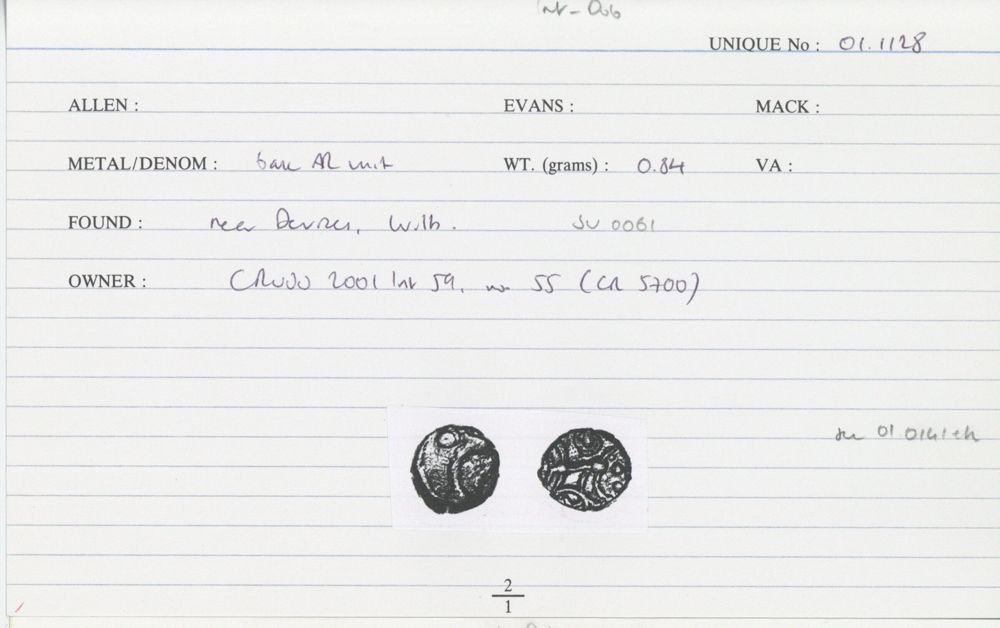 UNIQUE No : 01.1128
ALLEN : EVANS : MACK :
METAL/DENOM : base AR unit WT. (grams) : 0.84 VA :
FOUND : near Devizes, Wilts. SU 0061
OWNER : 2001 59, no 55 (CR 5700)
01 0141
2
1